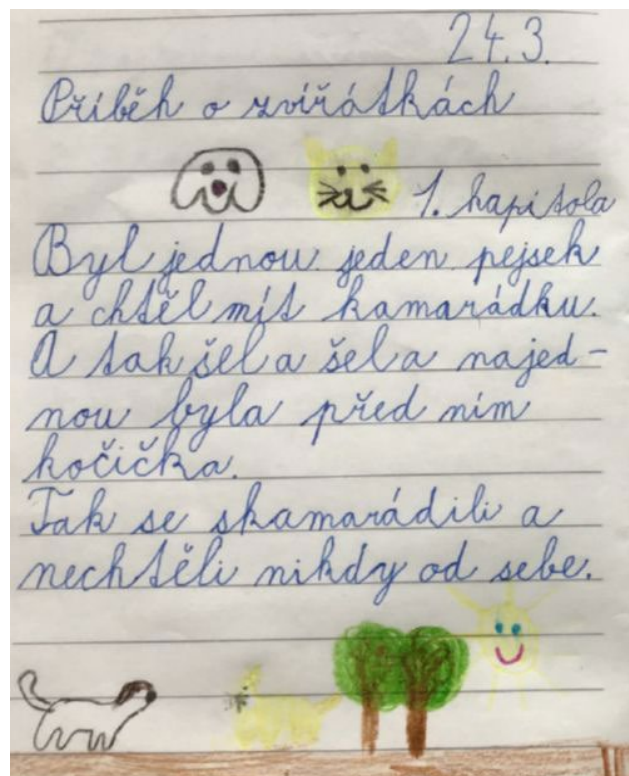 24.3.
Příběh o zvířátkách
1. kapitola
Byl jednou jeden pejsek
a chtěl mít kamarádku.
A tak šel a šel a najed-
nou byla před ním
kočička.
Tak se skamarádili a
nechtěli nikdy od sebe.